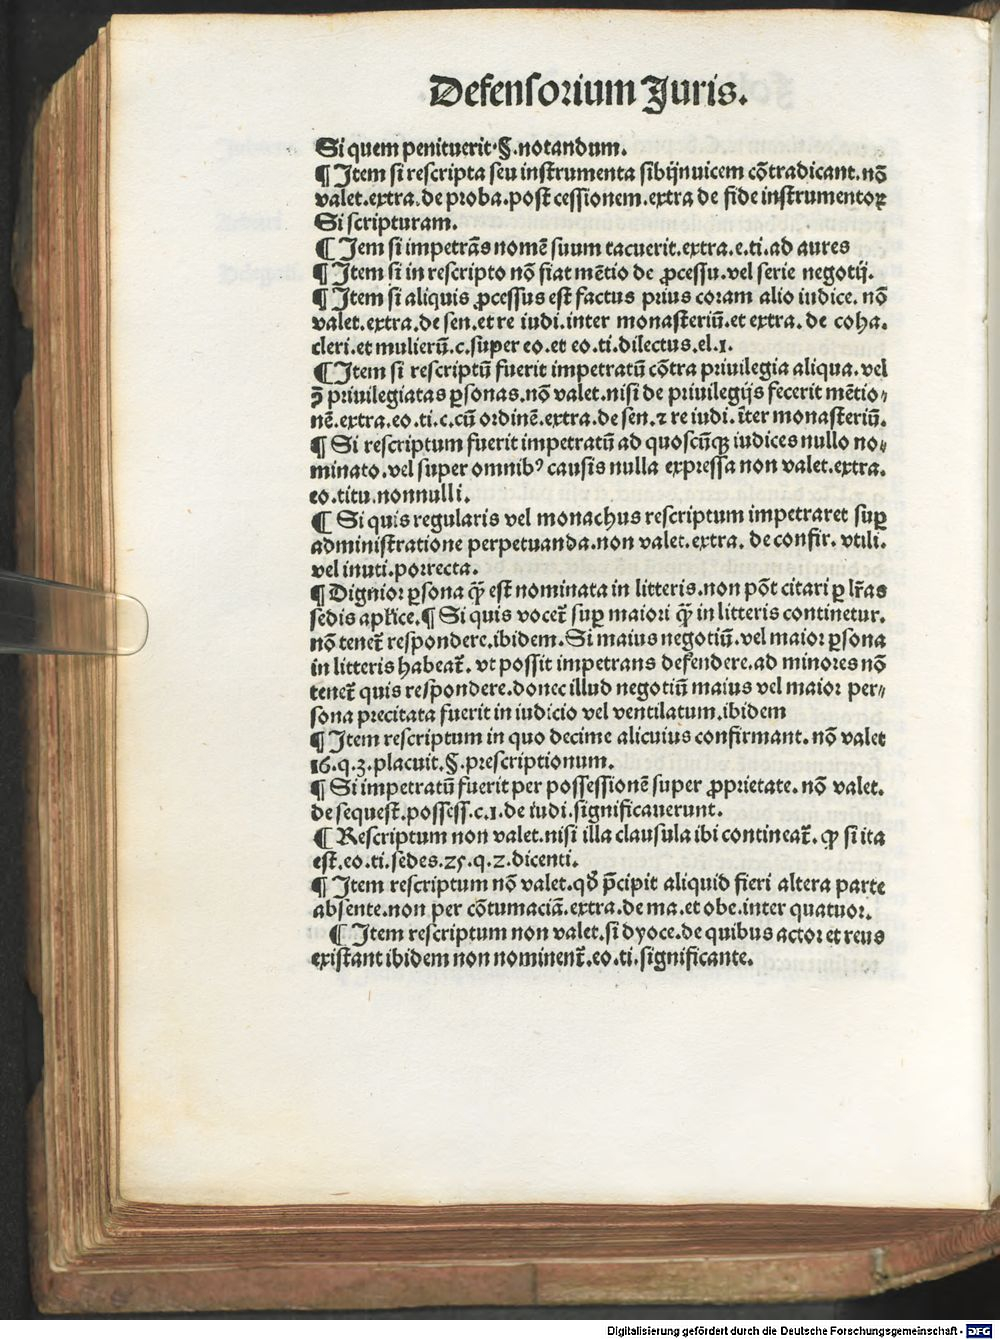 Defensorium Juris.
Si quem penituerit.§.notandum.
¶ Item si rescripta seu instrumenta sibijnuicem cōtradicant.nō
valet.extra.de proba.post cessionem.extra de fide instrumentoꝝ
Si scripturam.
¶ Jem si impetrās nomē suum tacuerit.extra.e.ti.ad aures
¶ Item si in rescripto nō fiat mētio de ꝓcessu.vel serie negotij.
¶ Item si aliquis ꝓcessus est factus prius coram alio iudice. nō
valet.extra.de sen.et re iudi.inter monasteriū.et extra. de coha.
cleri.et mulierū.c.super eo.et eo.ti.dilectus.el.1.
¶ Item si rescriptū fuerit impetratū cōtra priuilegia aliqua. vel
ꝯ̄ priuilegiatas ꝑsonas.nō valet.nisi de priuilegijs fecerit mētio⸗
nē.extra.eo.ti.c.cū ordinē.extra.de sen.⁊ re iudi.īter monasteriū.
¶ Si rescriptum fuerit impetratū ad quoscūqꝫ iudices nullo no⸗
minato.vel super omnibꝰ causis nulla expressa non valet.extra.
eo.titu.nonnulli.
¶ Si quis regularis vel monachus rescriptum impetraret suꝑ
administratione perpetuanda.non valet.extra. de confir. vtili.
vel inuti.porrecta.
¶ Dignior ꝑsona q̄ꝫ est nominata in litteris.non pōt citari ꝑ lr̄as
sedis apl̄ice.¶ Si quis vocet̄ suꝑ maiori q̄ꝫ in litteris continetur.
nō tenet̄ respondere.ibidem.Si maius negotiū.vel maior ꝑsona
in litteris habeat̄. vt possit impetrans defendere.ad minores nō
tenet̄ quis respondere.donec illud negotiū maius vel maior per⸗
sona precitata fuerit in iudicio vel ventilatum.ibidem
¶ Item rescriptum in quo decime alicuius confirmant. nō valet
16.q.3.placuit.§.prescriptionum.
¶ Si impetratū fuerit per possessionē super ꝓprietate. nō valet.
de sequest.possess.c.1.de iudi.significauerunt.
¶ Rescriptum non valet.nisi illa clausula ibi contineat̄. ꝙ si ita
est.eo.ti.sedes.25.q.2.dicenti.
¶ Item rescriptum nō valet.qđ p̄cipit aliquid fieri altera parte
absente.non per cōtumaciā.extra.de ma.et obe.inter quatuor.
¶ Item rescriptum non valet.si dyoce.de quibus actor et reus
existant ibidem non nominent̄.eo.ti.significante.
Digitalisierung gefördert durch die Deutsche Forschungsgemeinschaft - DFG